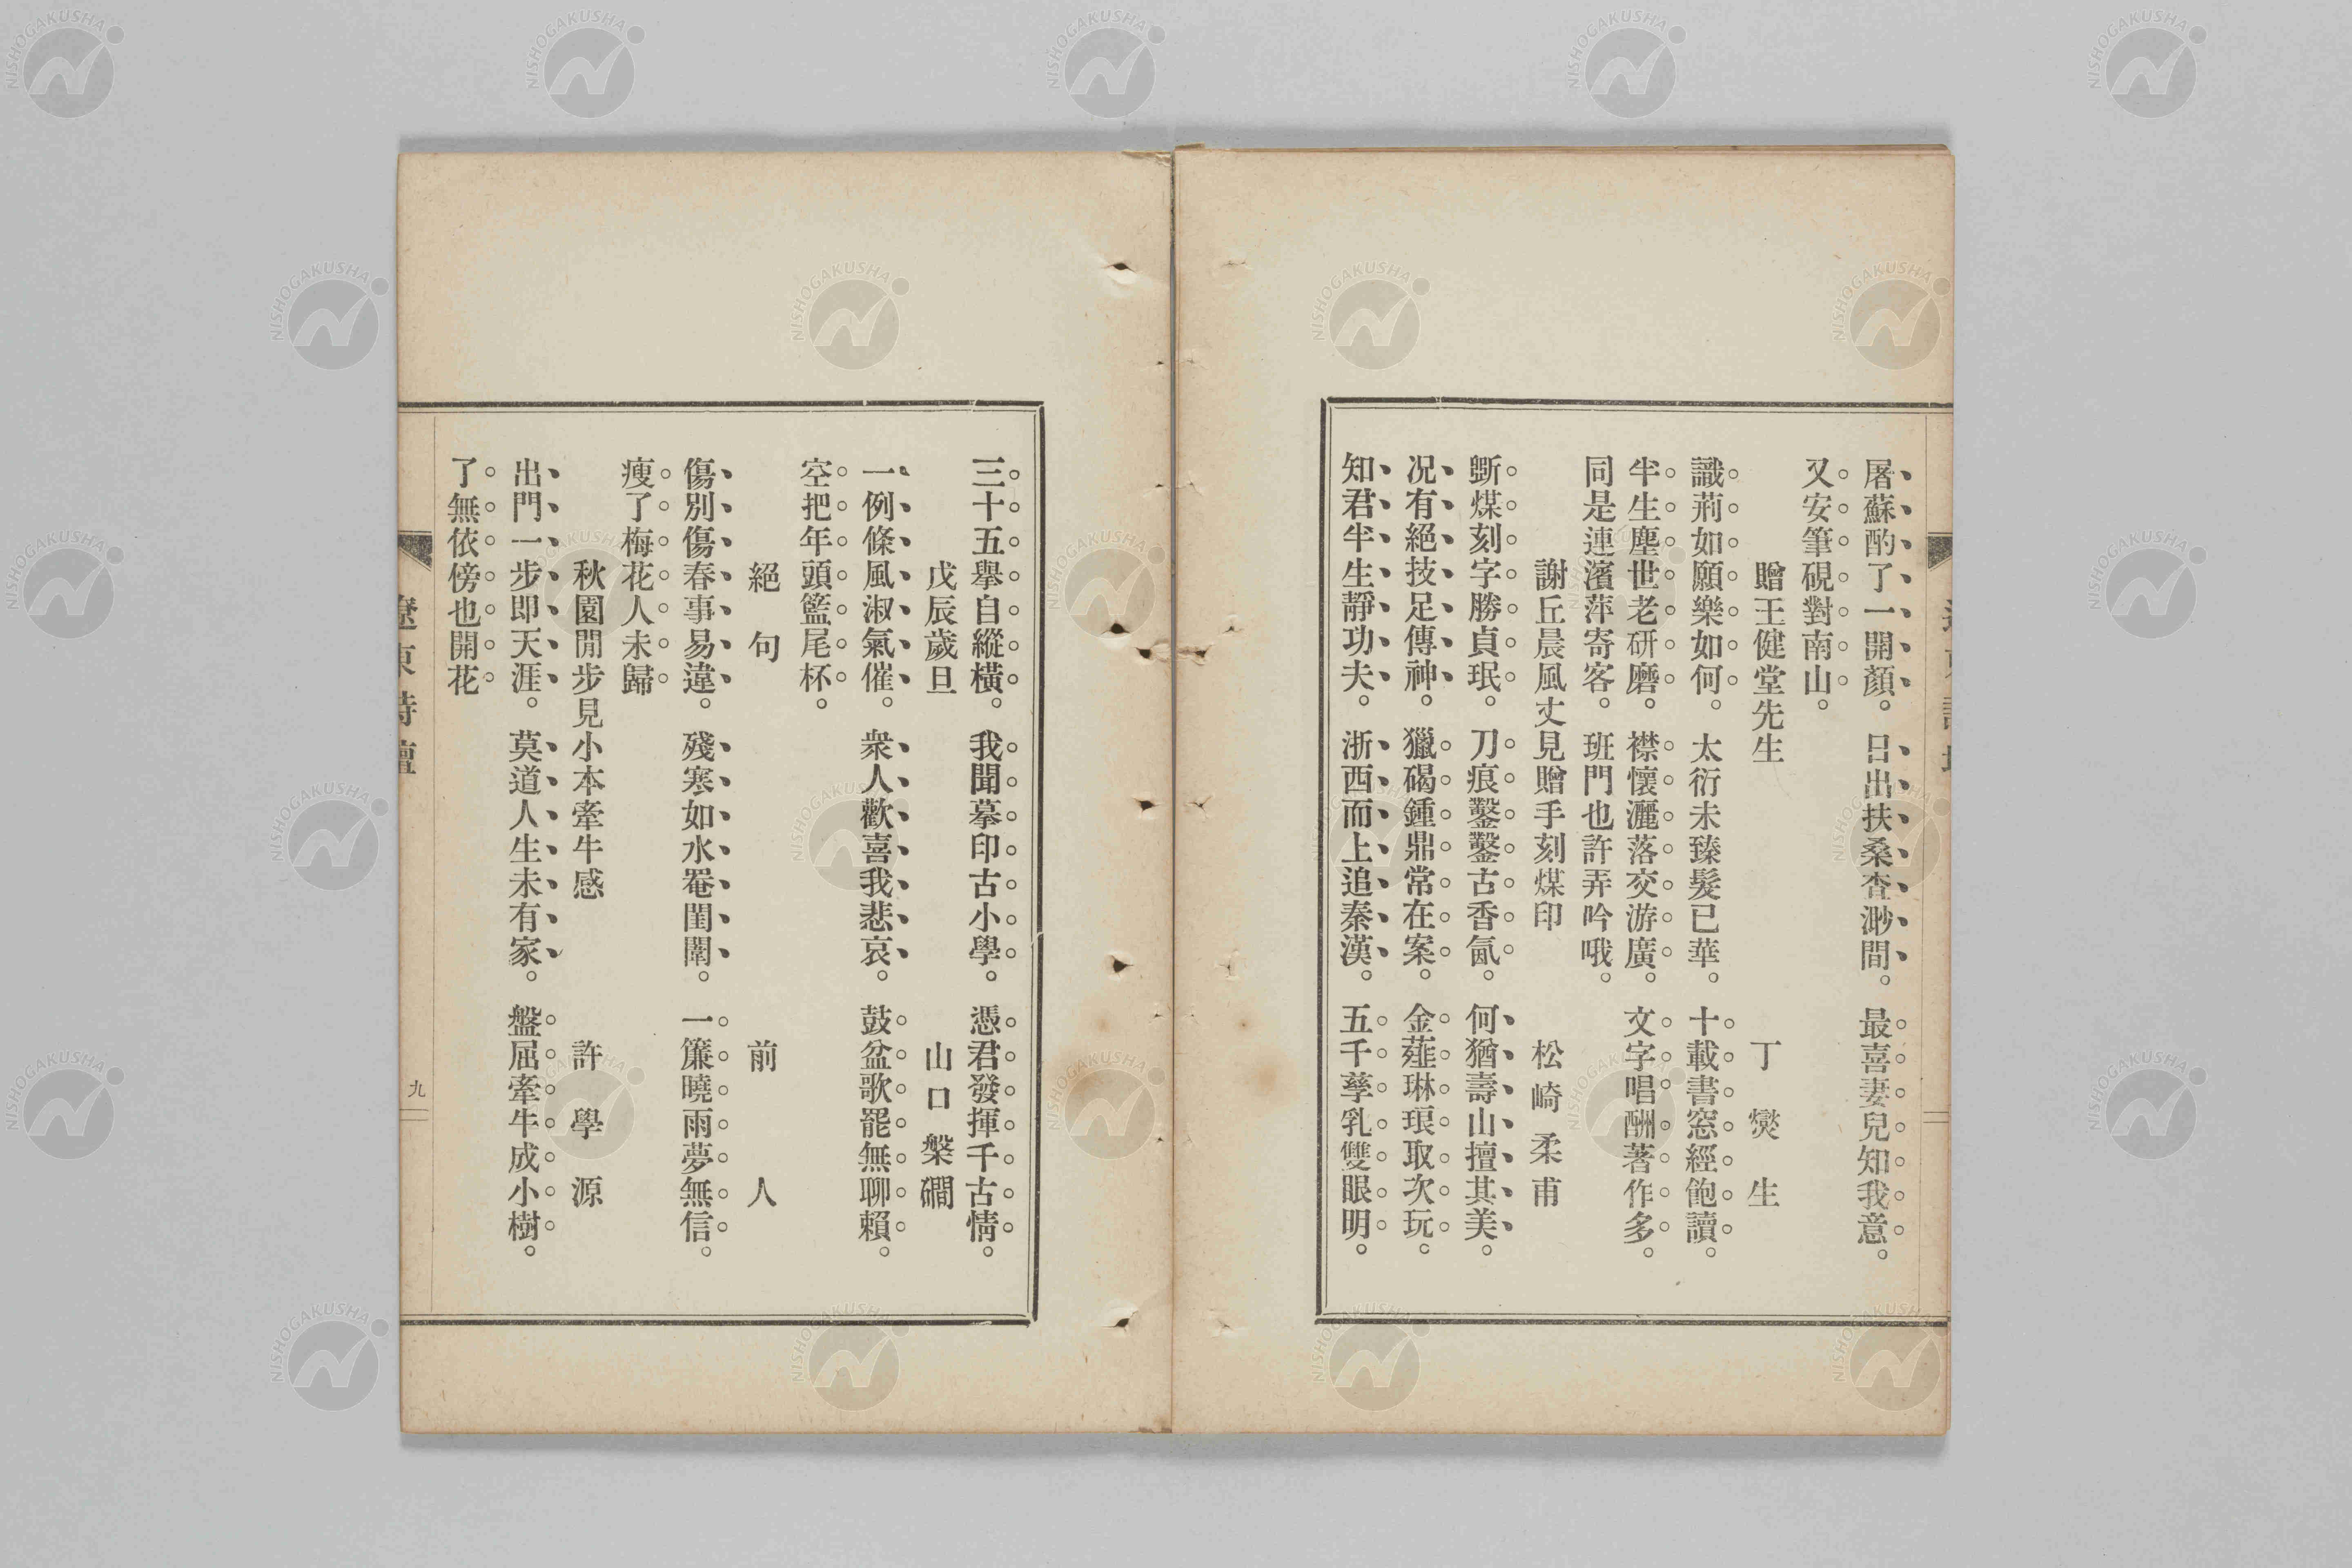 屠蘇酌了一開顏。日出扶桑査渺間。最喜妻兒知我意。
又安筆硯對南山。
贈王健堂先生　丁燮生
識荊如願樂如何。太衍未臻髮已華。十載書窓經飽讀。
半生塵世老研磨。襟懷灑落交游廣。文字唱酬著作多。
同是連濱萍寄客。班門也許弄吟哦。
謝丘晨風丈見贈手刻煤印　松崎柔甫
斲煤刻字勝貞珉。刀痕鑿鑿古香氤。何猶壽山擅其美。
况有絕技足傳神。獵碣鍾鼎常在案。金薤琳琅取次玩。
知君半生靜功夫。浙西而上追秦漢。五千孳乳雙眼明。
三十五擧自縱橫。我聞摹印古小學。憑君發揮千古情。
戊辰歲旦　山口槃礀
一例條風淑氣催。衆人歡喜我悲哀。鼓盆歌罷無聊賴。
空把年頭籃尾杯。
絕句　前人
傷別傷春事易違。殘寒如水罨閨闈。一簾曉雨夢無信。
瘦了梅花人未歸
秋園閒步見小本牽牛感　許學源
出門一步即天涯。莫道人生未有家。盤屈牽牛成小樹。
了無依傍也開花
遼東詩壇
九
NISHOGAKUSHA